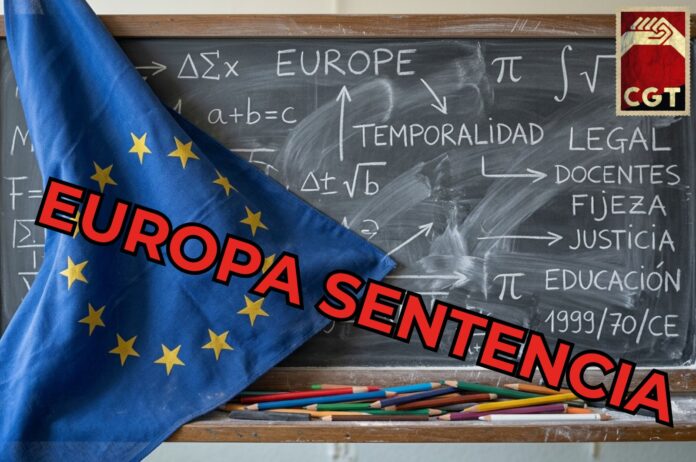 ΔΣx
EUROPE
π
∫√
CGT
M
a+b=c
TEMPORALIDAD
LEGAL
DOCENTES
F=
Δ± √b
FIJEZA
JUSTICIA
π
EDUCACIÓN
1999/70/CE
EUROPA SENTENCIA